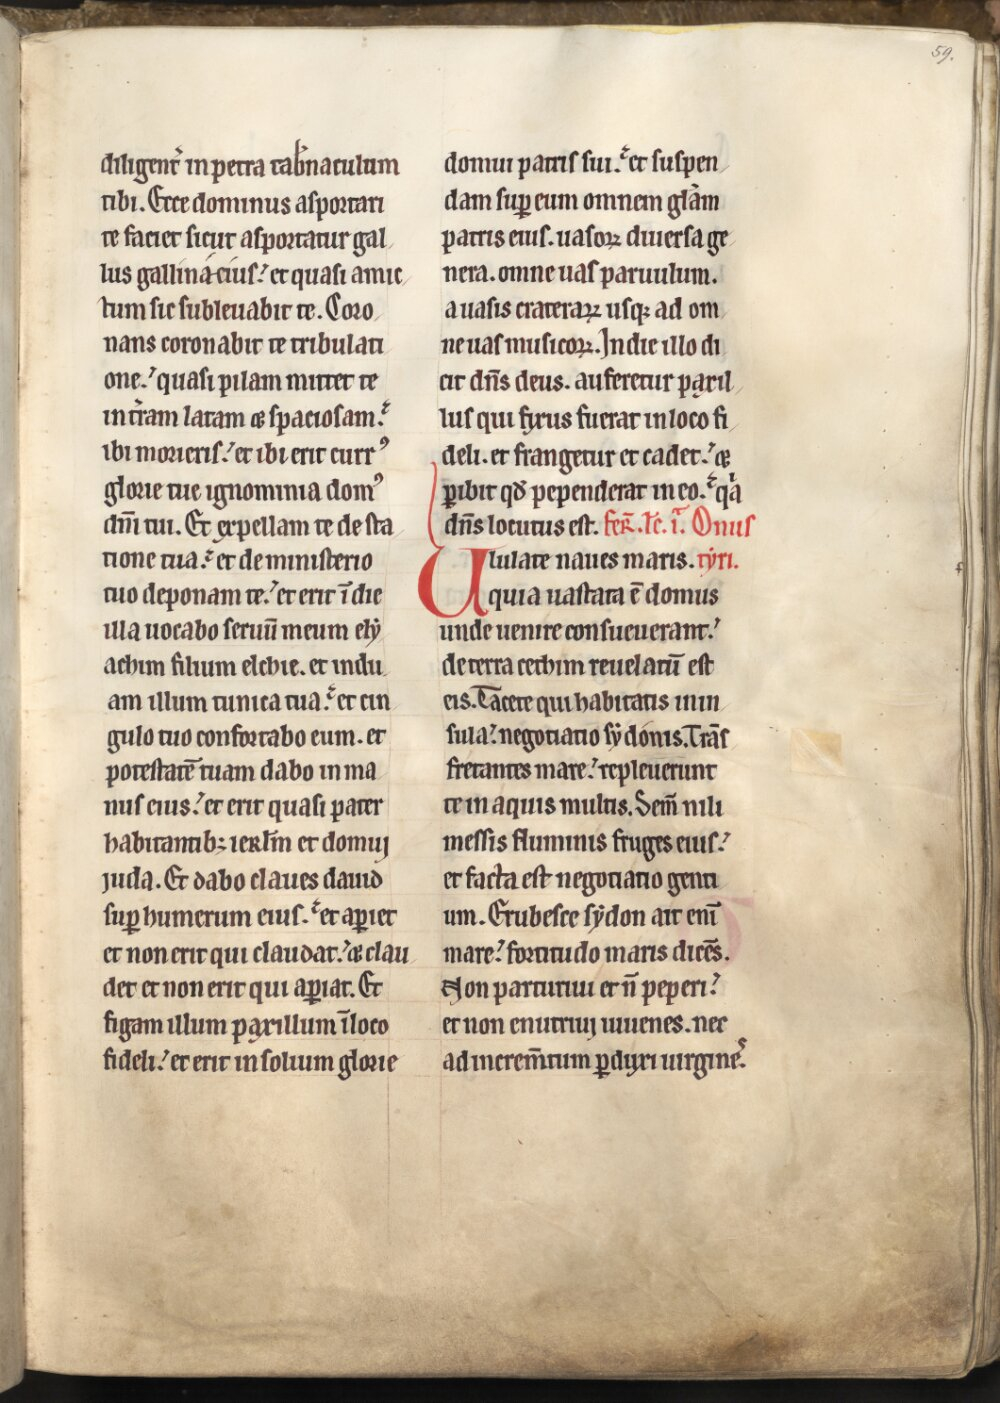 59.
diligent᷑ in petra tab̾naculum
tibi. Ecce dominus asportari
te faciet sicut asportatur gal
lus gallinacius. et quasi amic
tum sic subleuabit te. Coro
nans coronabit te tribulati
one. quasi pilam mittet te
in t̾ram latam & spaciosam.
ibi morieris. et ibi erit curr⁹
glorie tue ignominia dom⁹
dn̄i tui. Et expellam te de sta
tione tua. et de ministerio
tuo deponam te. et erit ī die
illa uocabo seruū meum ely
achim filium elchie. et indu
am illum tunica tua. et cin
gulo tuo confortabo eum. et
potestatē tuam dabo in ma
nus eius. et erit quasi pater
habitantib; ierlm̄ et domuj
juda. Et dabo claues dauid
sup̱ humerum eius. et ap̱iet
et non erit qui claudat. & clau
det et non erit qui ap̱iat. Et
figam illum paxillum ī loco
fideli. et erit in solium glorie
domui patris sui. et suspen
dam sup̱ eum omnem gl̄am
patris eius. uasoꝝ diuersa ge
nera. omne uas paruulum.
a uasis crateraꝝ usqꝫ ad om
ne uas musicoꝝ. In die illo di
cit dn̄s deus. auferetur paxil
lus qui fixus fuerat in loco fi
deli. et frangetur et cadet. &
p̱ibit qd̄ pependerat in eo. qͣa
dn̄s locutus est. fer̄. lc̄. i. Onus
Ululate naues maris. tyri.
quia uastata ē domus
unde uenire consueuerant.
de terra cethim reuelatū est
eis. Tacete qui habitatis in in
sula. negotiatio sydonis. Trās
fretantes mare. repleuerunt
te in aquis multis. Sem̄ nili
messis fluminis fruges eius.
et facta est negotiatio genti
um. Erubesce sydon ait enī
mare. fortitudo maris dicēs.
Non parturiui et n̄ peperi.
et non enutriuj iuuenes. nec
ad increm̄tum p̱duxi uirginēs.